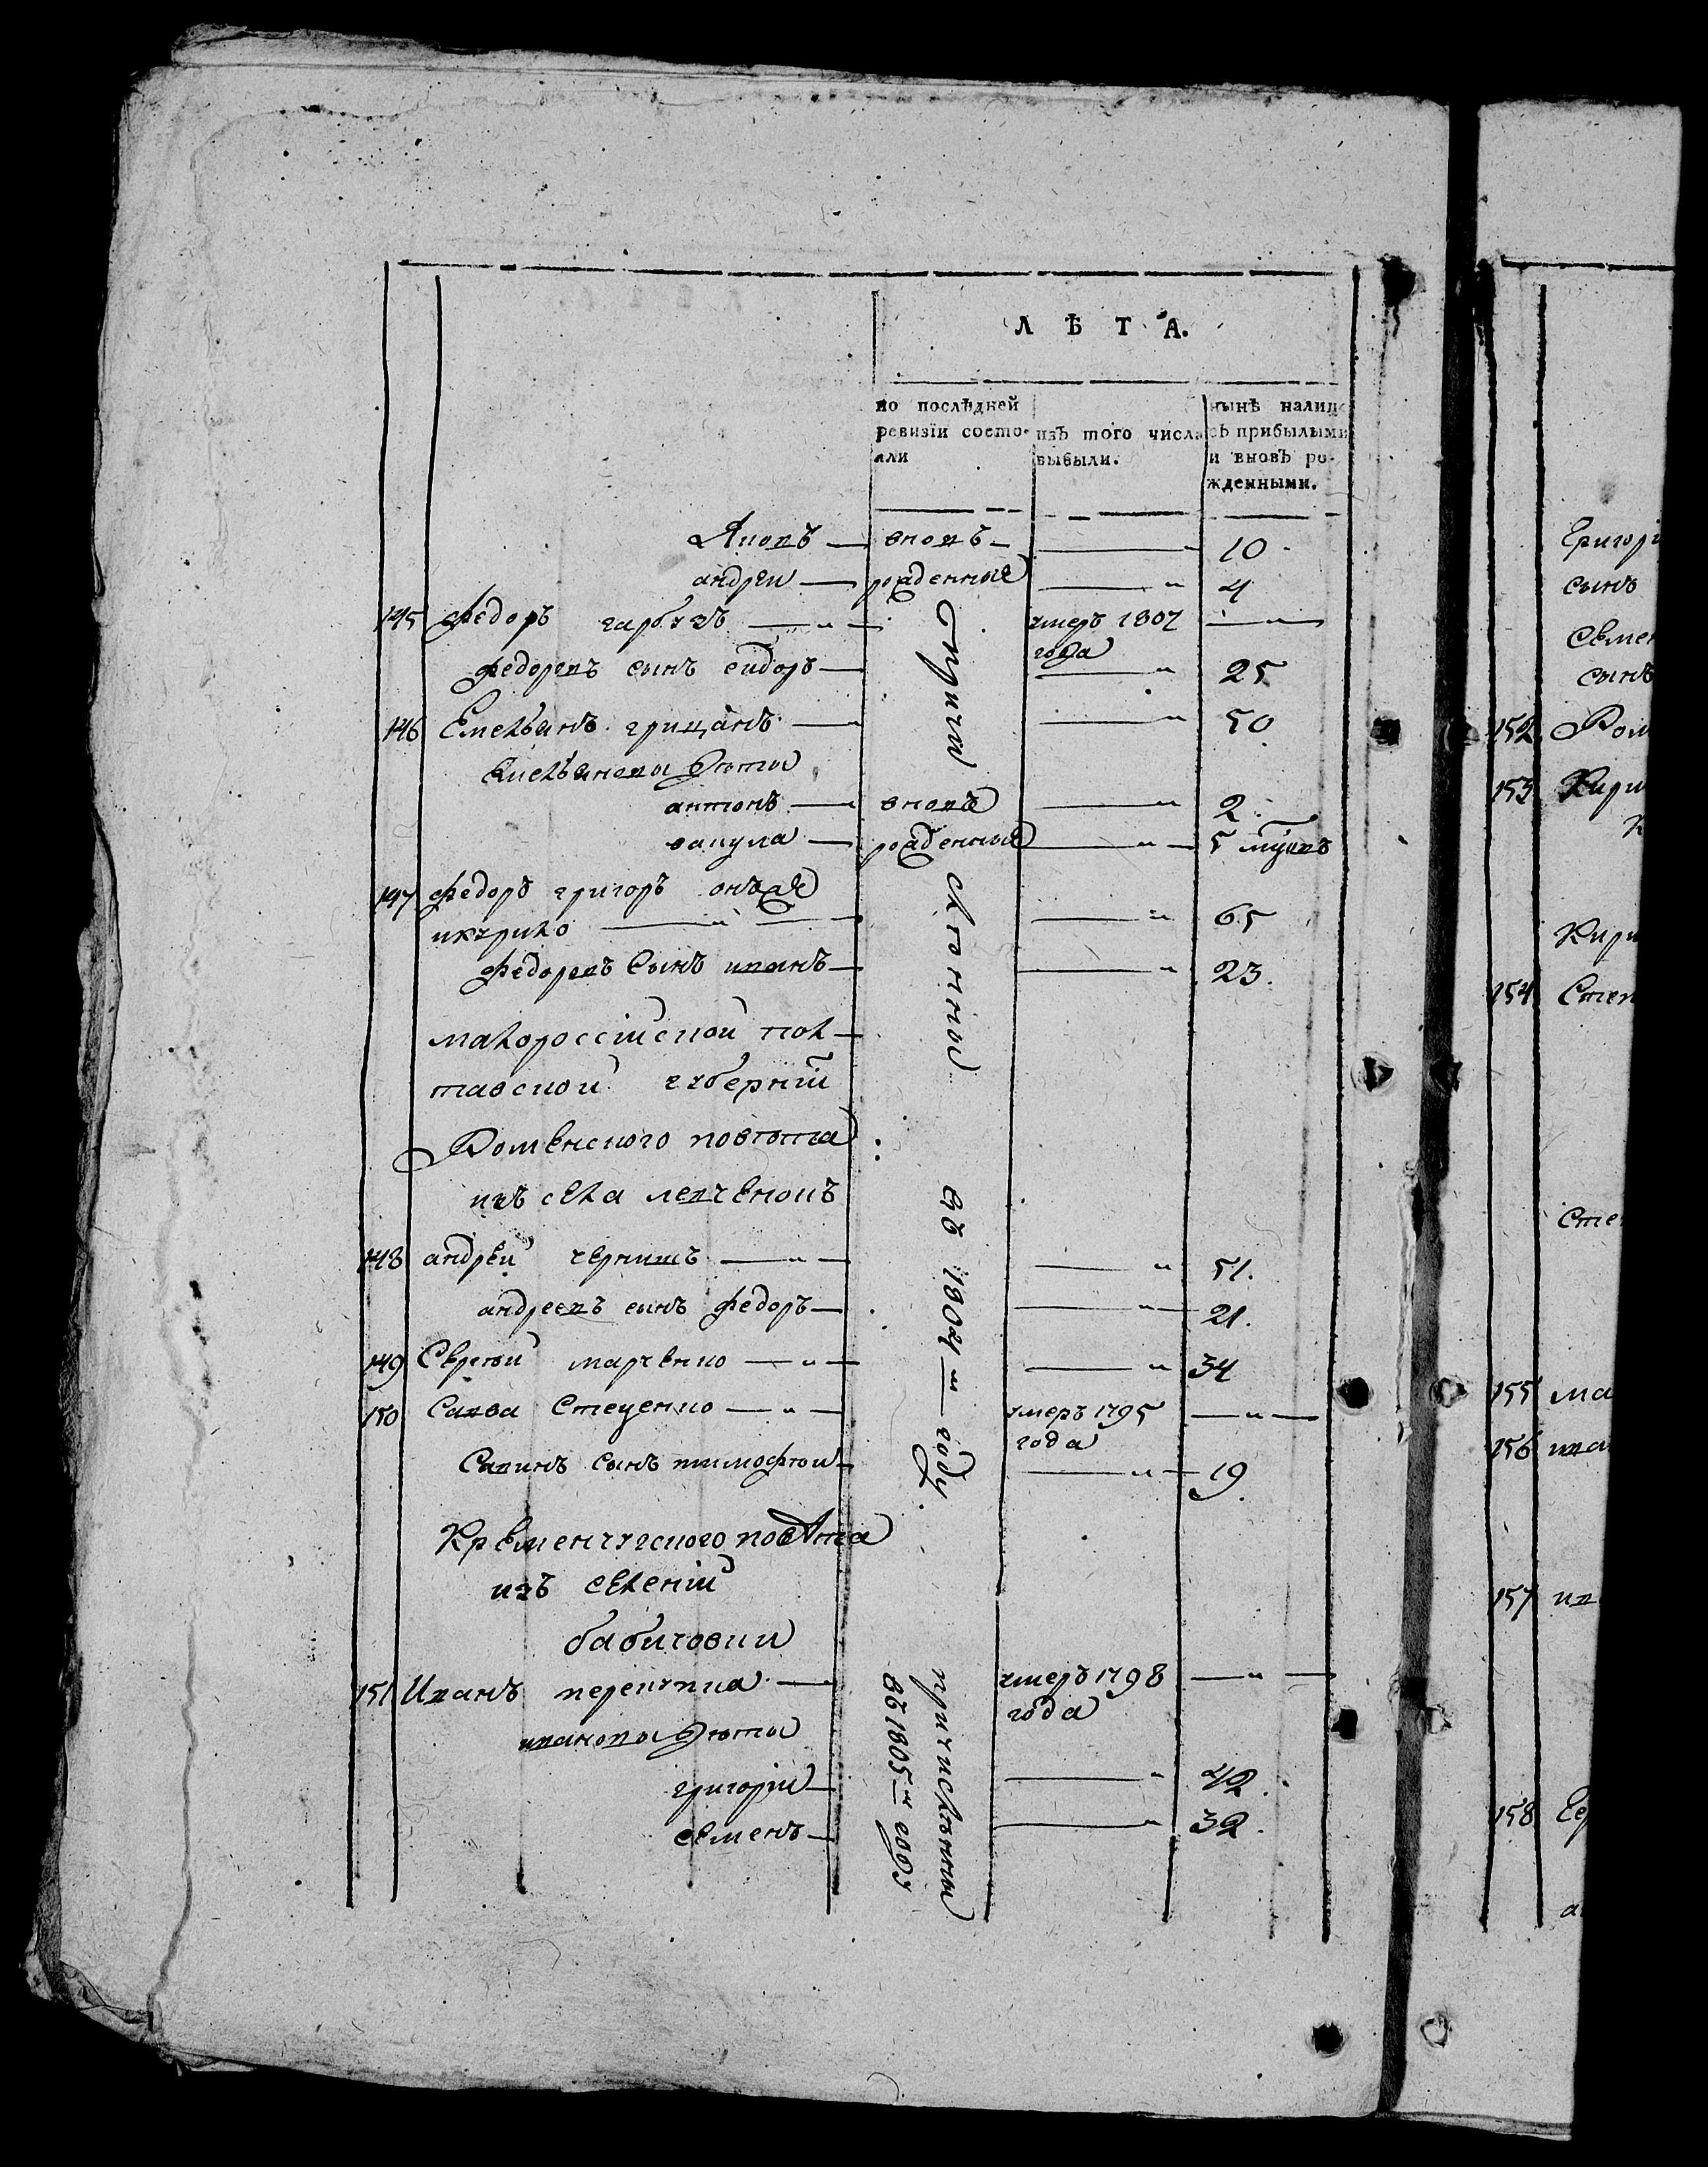 ЛѢТА.
по послѣдней ревизіи состояли
изъ того числа выбыли.
нынѣ налицо съ прибылыми и вновь рожденными.
Яковъ — вновь — — 10
андреи — рожденные — 4
145 Федоръ гарбузъ — умеръ 1807 года —
Федоровъ сынъ сидоръ — — 25
146 Емельянъ грицанъ — — 50
Емельяновы дѣти
антонъ — вновь — 2
вакула — рожденные — 5
147 Федоръ григоръ онъже
— 65
Федоровъ сынъ иванъ — — 23.
малороссійской пол-
тавской губерніи
Роменского повѣта
изъ села
148 андрей чернишъ — — 51.
андреевъ сынъ Федоръ — — 21.
149 Сергей марченко — — 34
150 Савва Стеценко — умеръ 1795 года —
Савинъ сынъ тимофѣи — — 19.
Кременчугского повѣта
изъ селеній
бабичовки
151 Иванъ перекупка — умеръ 1798 года —
ивановы дѣти
григоріи — — 42.
семенъ — — 32.
въ 1804 м году
причисленны
въ 1805 м году
Григорі
сынъ
Семен
сынъ
152 Ром
153 Кири
Кири
154 Степ
Сте
155 ма
156 ива
157 ив
158